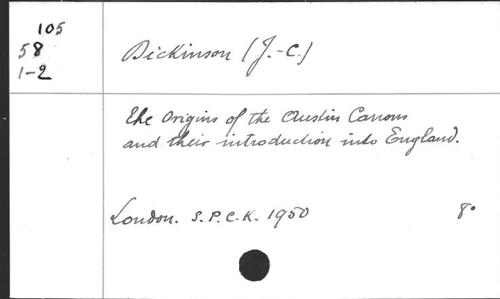 105
58
1-2
Dickinson (J.-C.)
The Origins of the Austin Canons
and their introduction into England.
London. S.P.C.K. 1950 8°